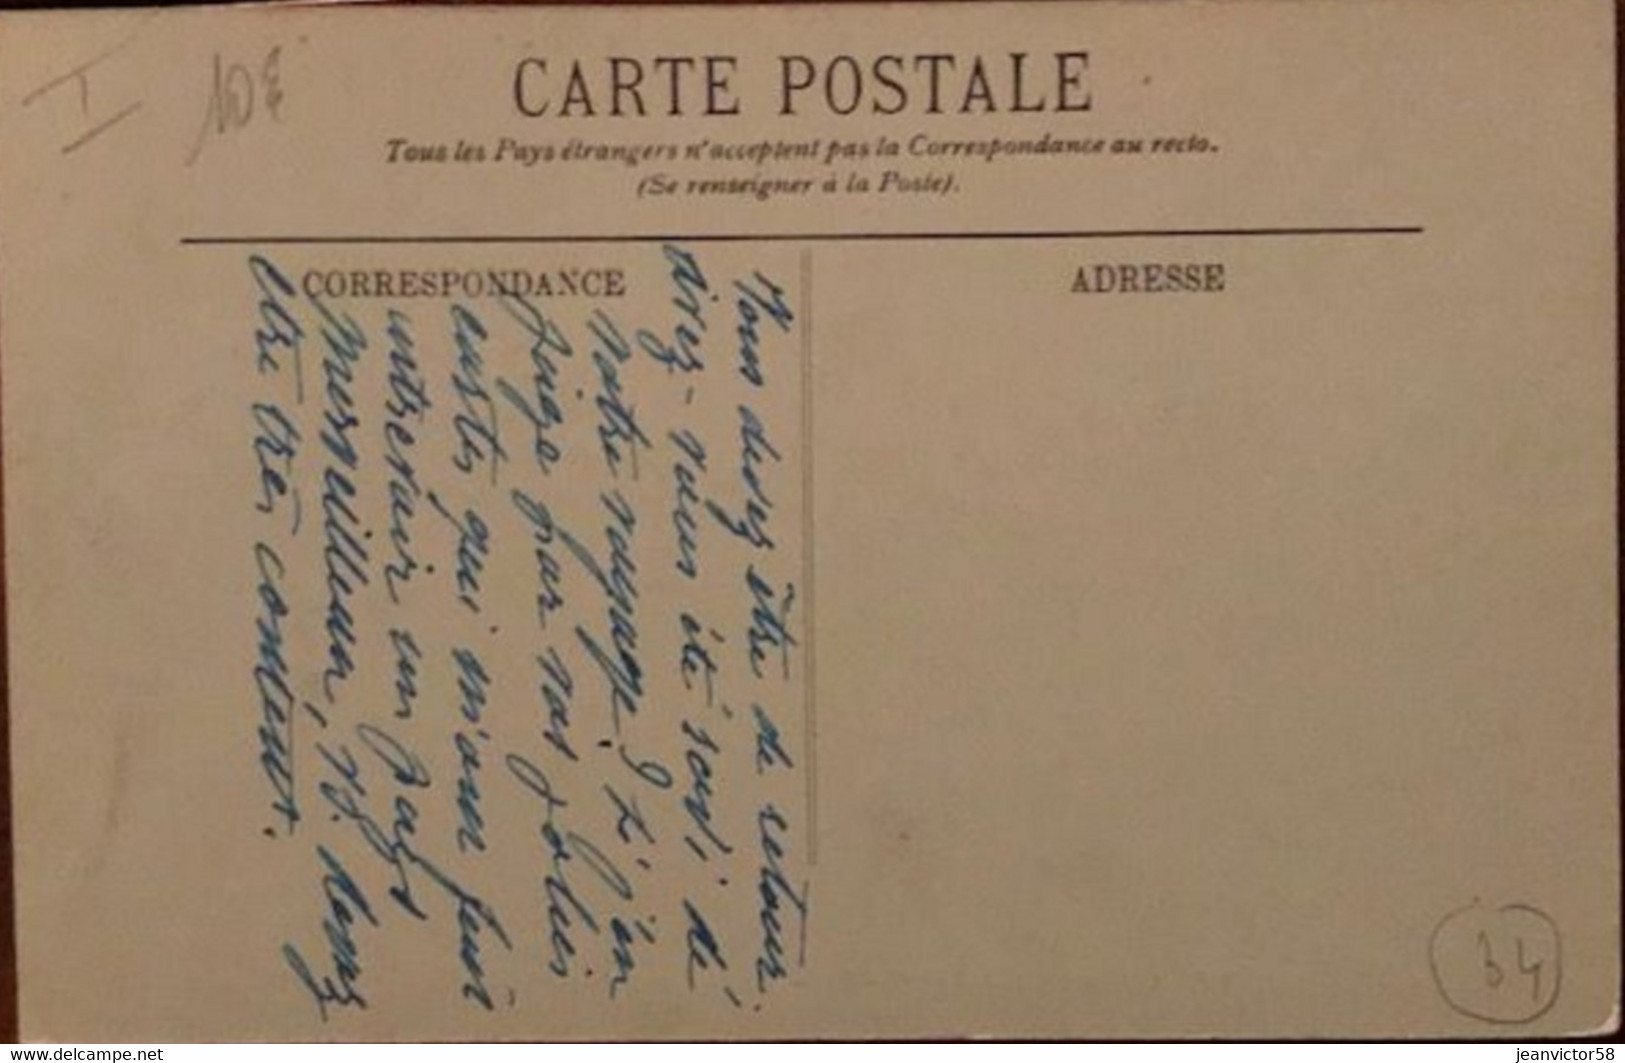 I 10€
CARTE POSTALE
Tous les Pays étrangers n'acceptent pas la Correspondance au recto.
(Se renseigner à la Poste).
CORRESPONDANCE
ADRESSE
Vous devez être de retour.
été
Notre voyage ? Si j'en
juge par vos jolies
cartes qui m'ont fait
entrevoir un pays
merveilleux, v. devez
être très content.
34
www.delcampe.net
jeanvictor58